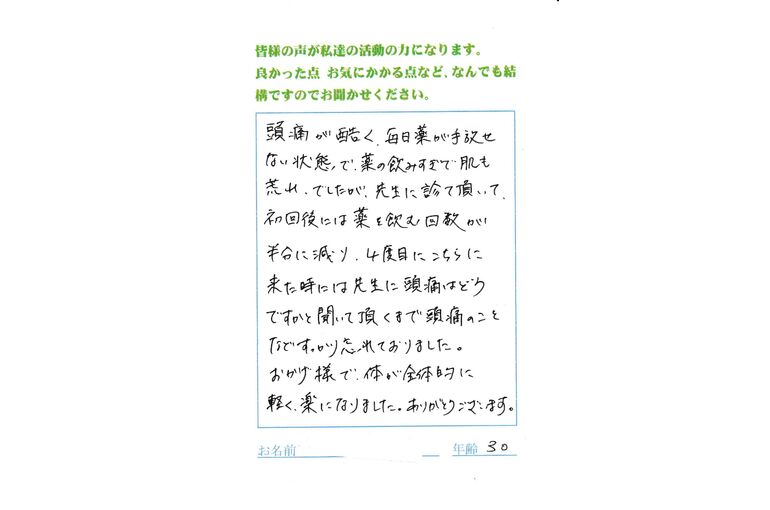 皆様の声が私達の活動の力になります。
良かった点 お気にかかる点など、なんでも結
構ですのでお聞かせください。
頭痛が酷く、毎日薬が手放せ
ない状態で、薬の飲みすぎで肌も
荒れ、でしたが、先生に診て頂いて、
初回後には薬を飲む回数が
半分に減り、4度目にこちらに
来た時には先生に頭痛はどう
ですかと聞いて頂くまで頭痛のこと
などすっかり忘れておりました。
おかげ様で、体が全体的に
軽く、楽になりました。ありがとうございます。
お名前 年齢 30